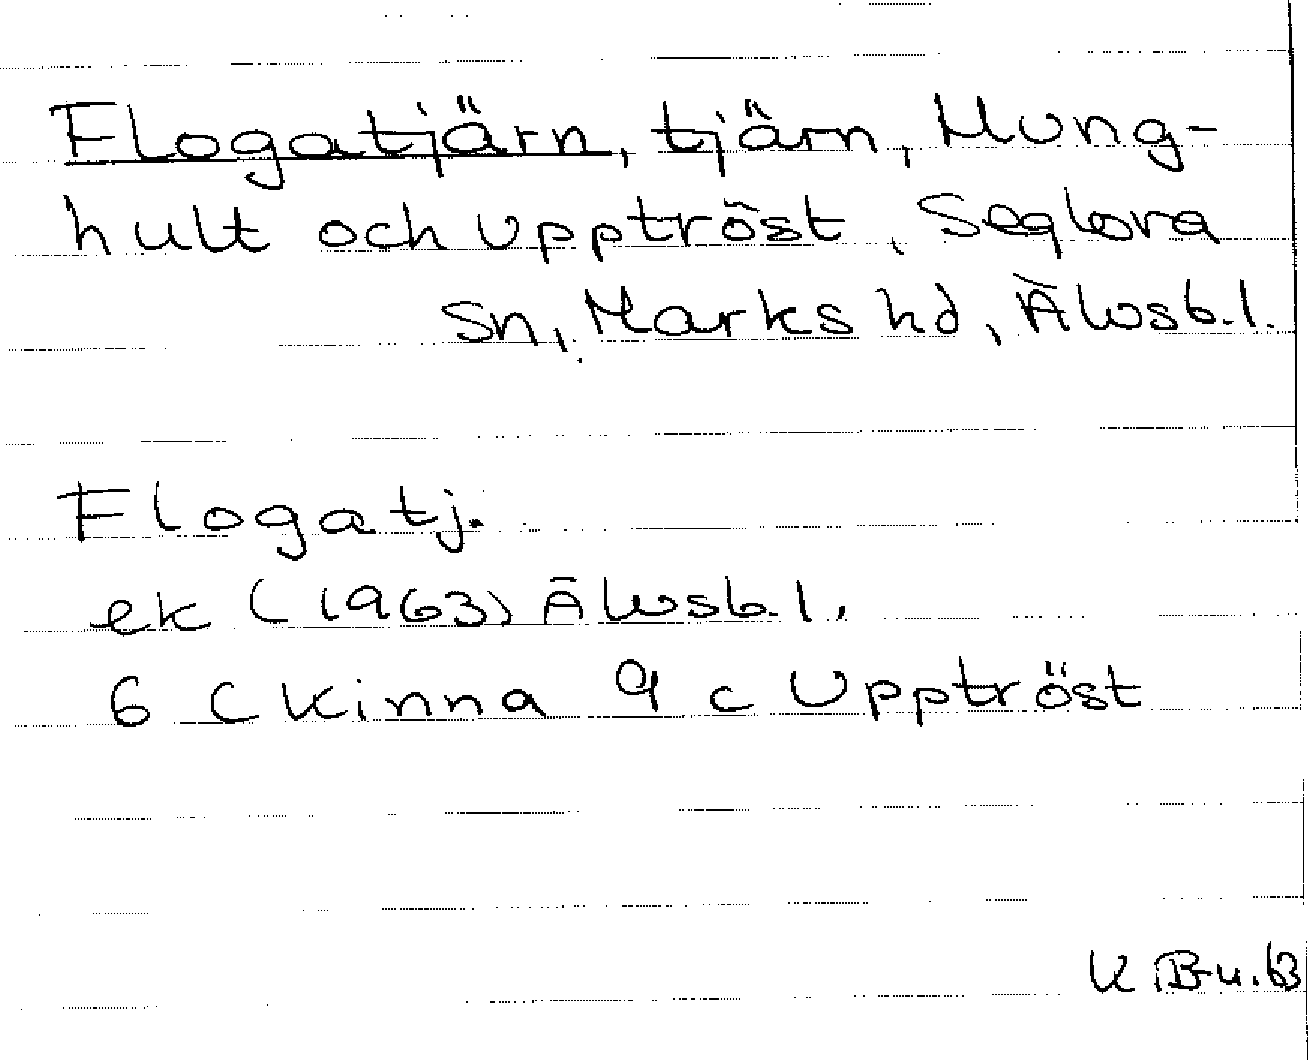 Flogatjärn, tjärn, Hung-
hult och Upptröst, Seglora
sn, Marks hd, Älvsb.l.
Flogatj.
ek (1963) Älvsb.l.
6 C Kinna 9 c Upptröst
K B-u. 63